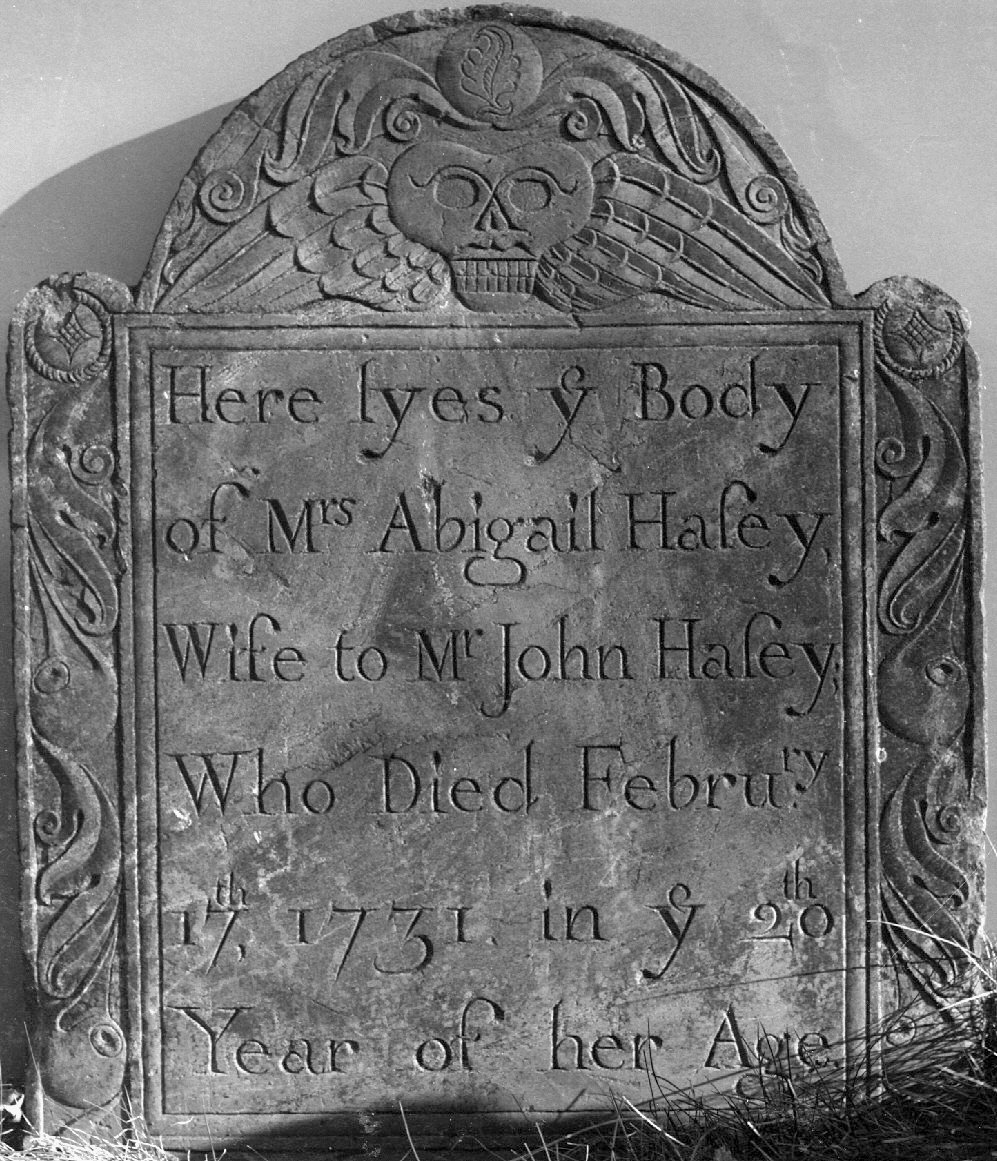 Here lyes yͤ Body
of Mrs Abigail Haſey,
Wife to Mr John Haſey,
Who Died Februry
17th, 1731. in yͤ 20th
Year of her Age.